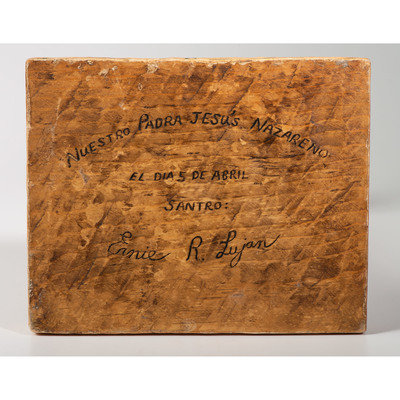 NUESTRO PADRA JESÚS NAZARENO
EL DIA 5 DE ABRIL
SANTRO:
Ernie R. Lujan